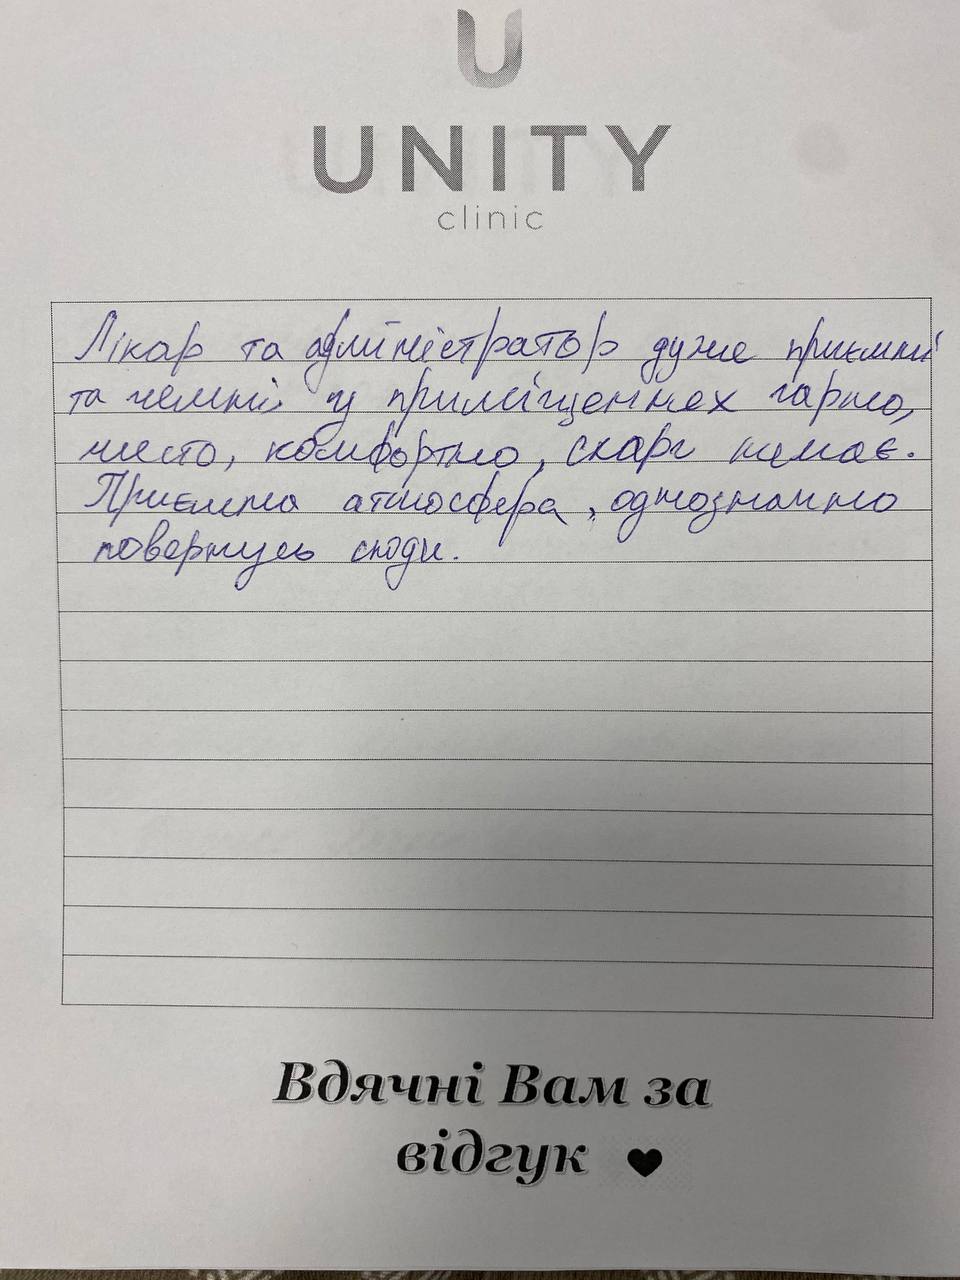 U
UNITY
clinic
Лікар та адміністратор дуже приємні
та чемні у приміщеннях гарно,
чисто, комфортно, скарг немає.
Приємна атмосфера, однозначно
повернусь сюди.
Вдячні Вам за
відгук ♥